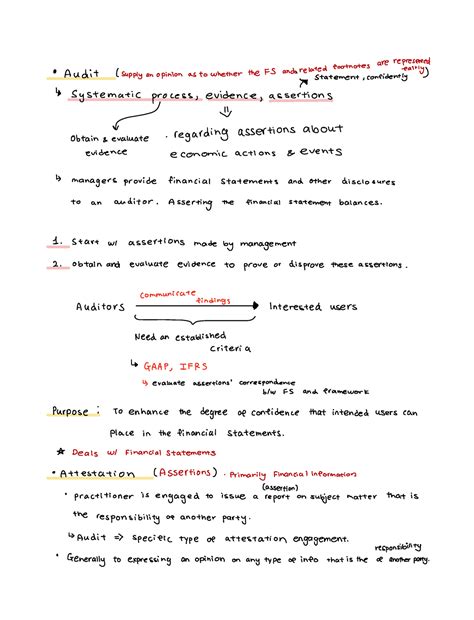 • Audit (supply an opinion as to whether the FS and related footnotes are represented fairly)
↳ Systematic process, evidence, assertions
statement, confidently
Obtain & evaluate evidence
• regarding assertions about economic actions & events
↳ managers provide financial statements and other disclosures
to an auditor. Asserting the financial statement balances.
1. Start w/ assertions made by management
2. obtain and evaluate evidence to prove or disprove these assertions.
Auditors communicate findings → Interested users
Need an established
criteria
↳ GAAP, IFRS
↳ evaluate assertions' correspondence
b/w FS and framework
Purpose : To enhance the degree of confidence that intended users can
place in the financial statements.
★ Deals w/ Financial Statements
• Attestation (Assertions) • Primarily Financial information
(assertion)
• practitioner is engaged to issue a report on subject matter that is
the responsibility of another party.
↳ Audit => specific type of attestation engagement.
• Generally to expressing an opinion on any type of info that is the responsibility of another party.